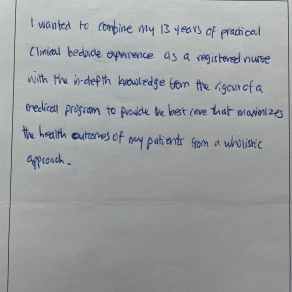 I wanted to combine my 13 years of practical
clinical bedside experience as a registered nurse
with the in-depth knowledge from the rigour of a
medical program to provide the best care that maximizes
the health outcomes of my patients from a wholistic
approach.